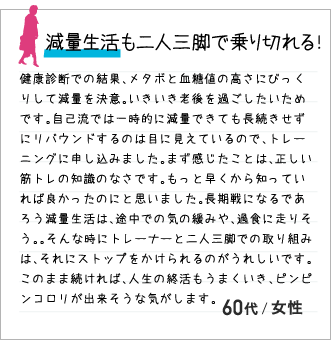 減量生活も二人三脚で乗り切れる!
健康診断での結果、メタボと血糖値の高さにびっく
りして減量を決意。いきいき老後を過ごしたいため
です。自己流では一時的に減量できても長続きせず
にリバウンドするのは目に見えているので、トレー
ニングに申し込みました。まず感じたことは、正しい
筋トレの知識のなさです。もっと早くから知ってい
れば良かったのにと思いました。長期戦になるであ
ろう減量生活は、途中での気の緩みや、過食に走りそ
う。。そんな時にトレーナーと二人三脚での取り組み
は、それにストップをかけられるのがうれしいです。
このまま続ければ、人生の終活もうまくいき、ピンピ
ンコロリが出来そうな気がします。
60代 / 女性